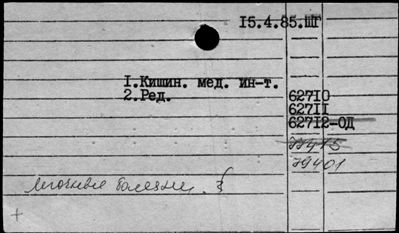 15.4.85.ШГ
1.Кишин. мед. ин-т.
2.Ред.
62710
62711
62712-ОД
77415
79401
легочные болезни.